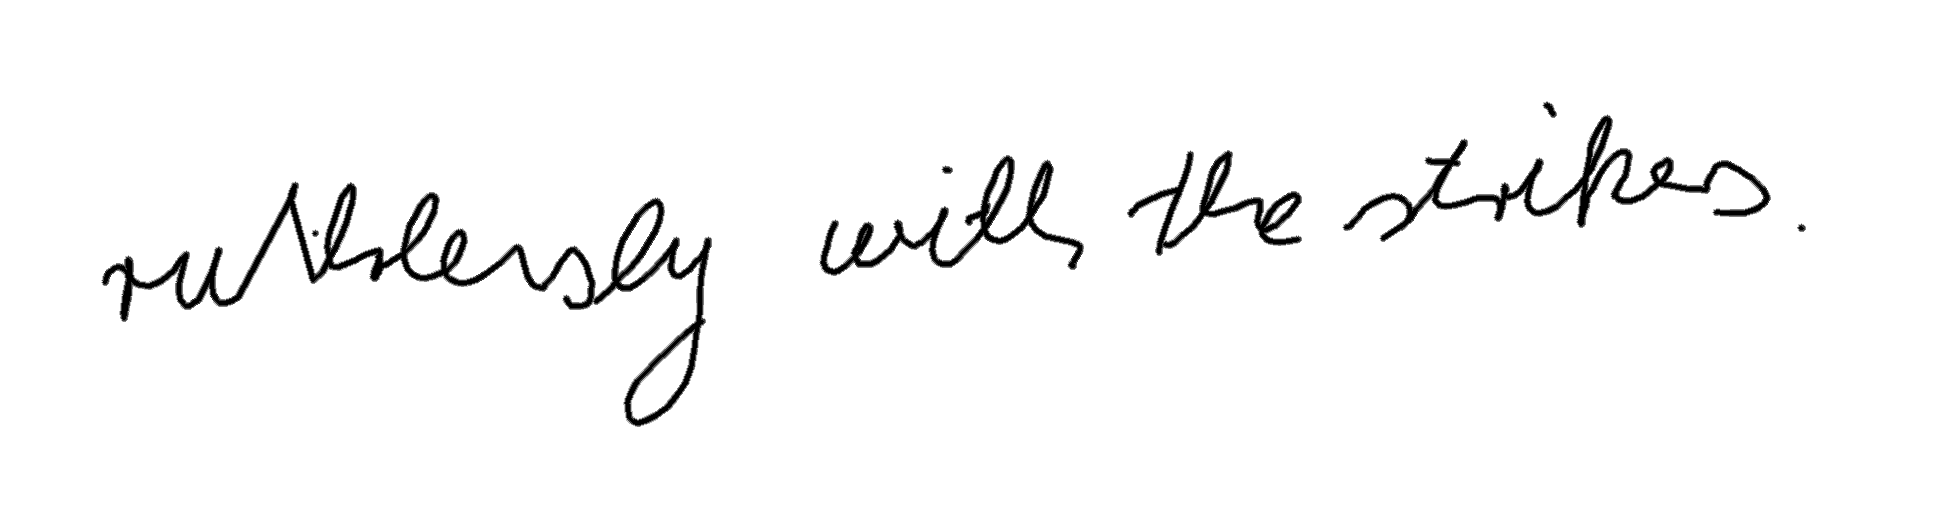 ruthlessly with the strikes.